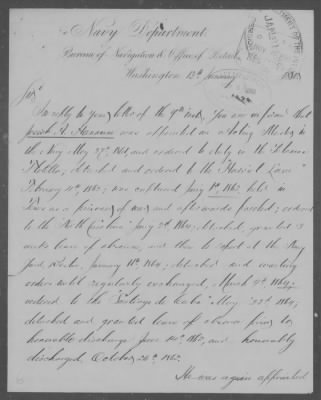 Navy Department.
Bureau of Navigation & Office of Detail
Washington 13th January
Sir
In reply to your letter of the 9th inst. You are informed that
Joseph A. Hannum was appointed an Acting Master in
the Navy May 27th, 1861, and ordered to duty in the
detached and ordered to the "Harriet Lane"
February 10th, 1862; was captured Jany 1st 1863; held in
Texas as a prisoner of war and afterwards paroled; ordered
to the "North Carolina" Jany 2d 1864; detached, granted 2
weeks leave of absence, and then to report at the Navy
Yard, Boston, January 18th 1864; detached and awaiting
orders until regularly exchanged, March 9th 1864;
ordered to the "Santiago de Cuba" May 23d 1864,
detached and granted leave of absence prior to
honorable discharge June 14th 1865, and honorably
discharged October 26th 1865.
He was again appointed